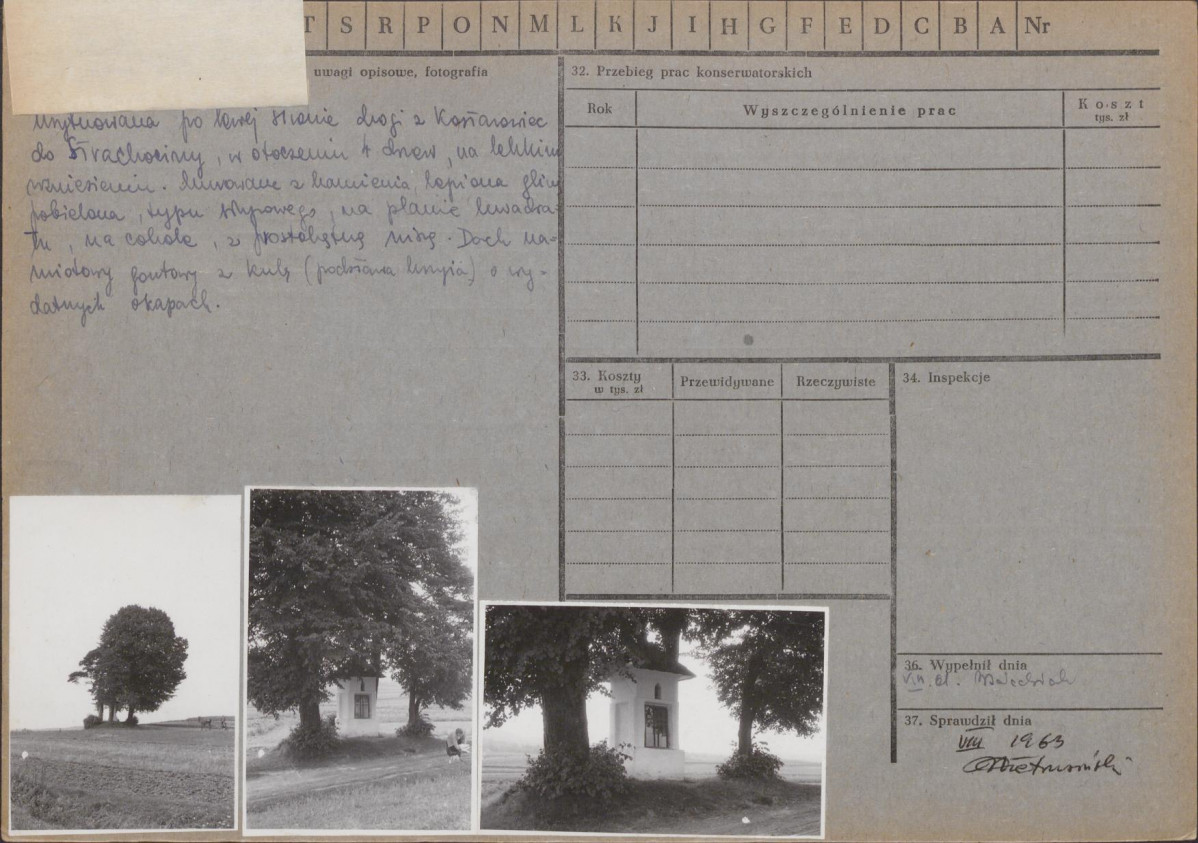 T S R P O N M L K J I H G F E D C B A Nr
uwagi opisowe, fotografia
usytuowana po lewej stronie drogi z Kostarowiec
do Strachociny, w otoczeniu 4 drzew, na lekkim
wzniesieniu. Murowana z kamienia, lepiona glin
pobielona, typu słupowego, na planie kwadra-
tu, na cokole, z prostokątną niszą. Dach na-
miotowy gontowy z kulą (podstawa krzyża) o wy-
datnych okapach.
32. Przebieg prac konserwatorskich
Rok Wyszczególnienie prac Koszt
tys. zł
33. Koszty
w tys. zł
Przewidywane Rzeczywiste
34. Inspekcje
36. Wypełnił dnia
VIII. 61.
37. Sprawdził dnia
VIII 1963